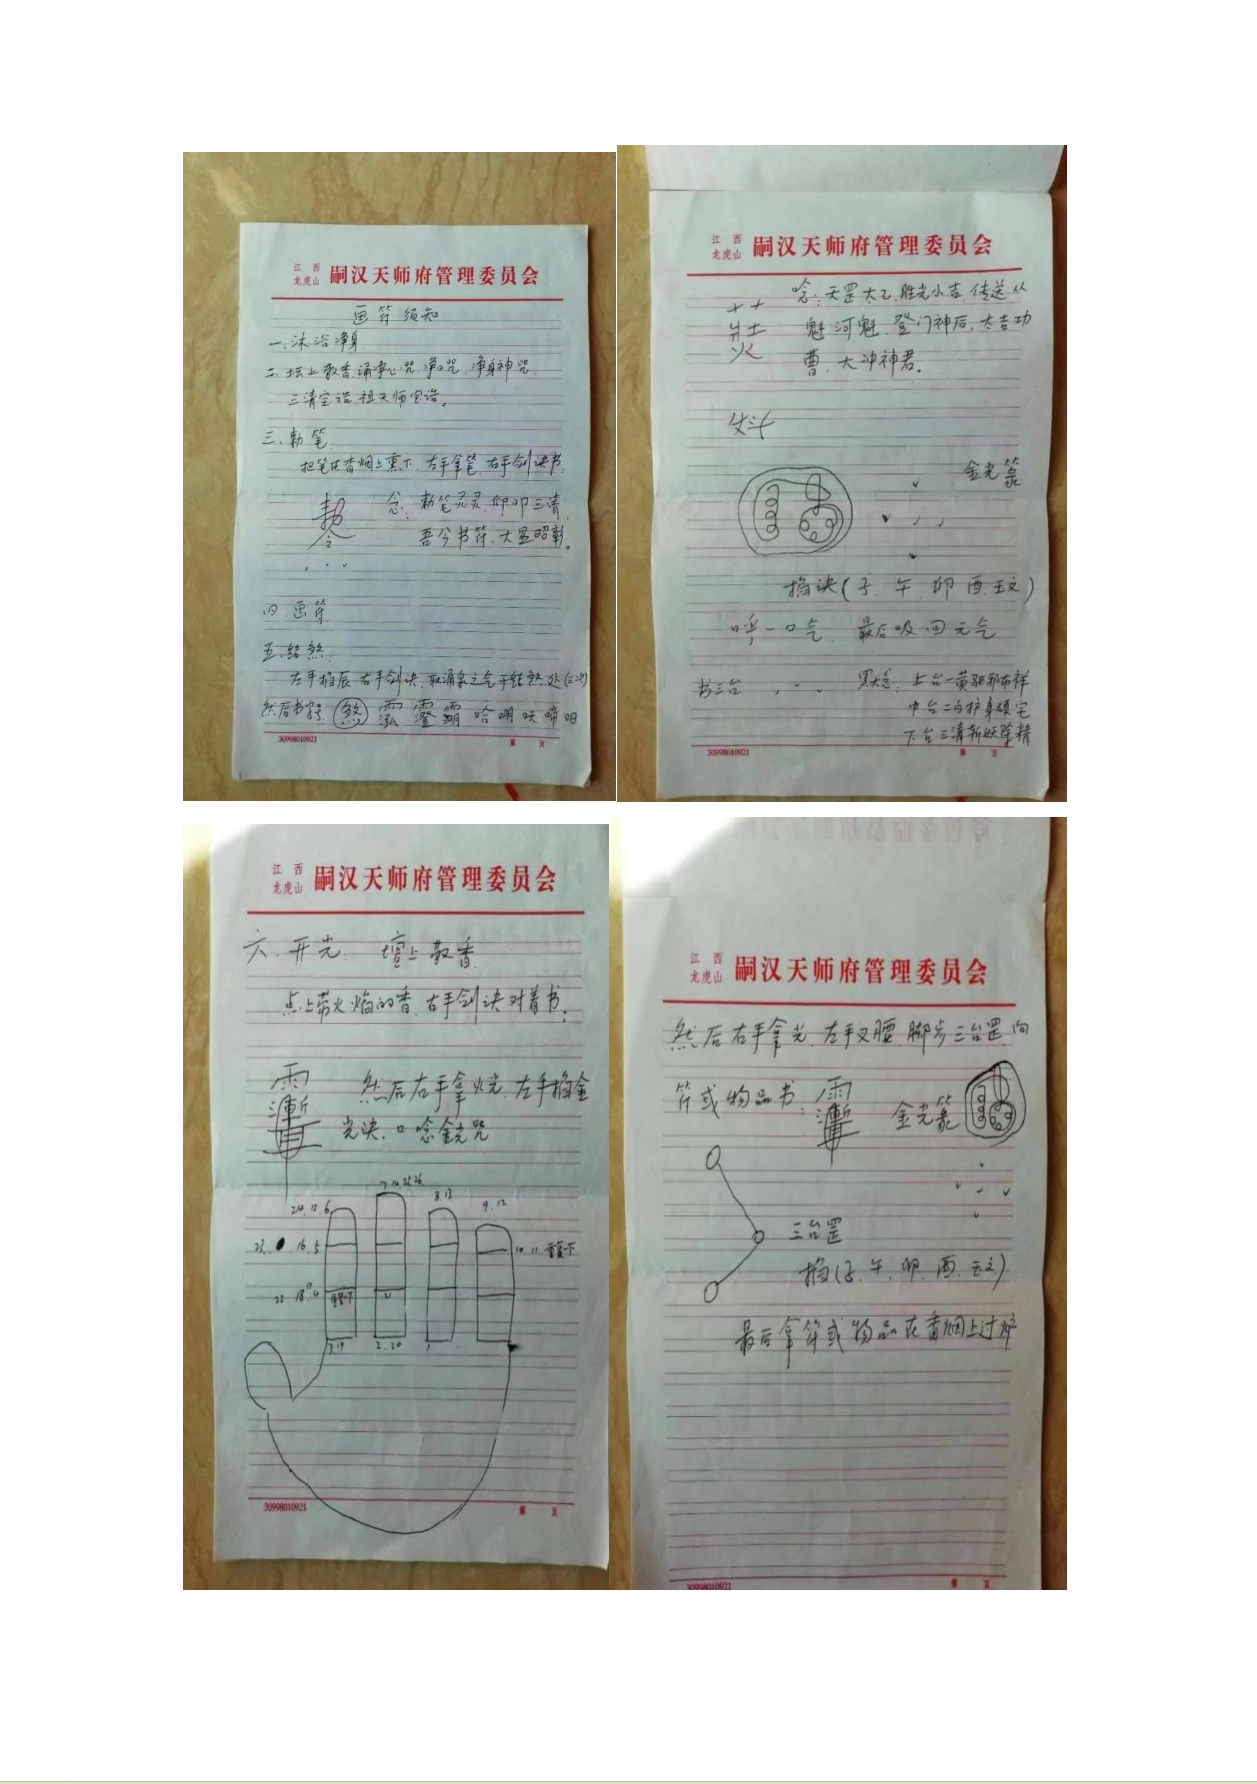 江西
龙虎山
嗣汉天师府管理委员会
画符须知
一、沐浴净身
二、坛上敬香,诵净心咒,净口咒,净身神咒,
三清宝诰,祖天师宝诰。
三、勅笔
把笔在香烟上熏下,左手拿笔,右手剑诀书:
念:勅笔灵灵,仰叩三清,
吾今书符,大显昭彰。
四、画符
五、结煞
左手掐辰,右手剑诀,取涌泉之气于结煞处(三次)
然后书字号 煞
30998010921
第 页
江西
龙虎山
嗣汉天师府管理委员会
念:天罡太乙,胜光小吉,传送从
魁河魁,登门神后,大吉功
曹,大冲神君。
金光篆
掐诀(子、午、卯、酉、玉文)
呼一口气 最后吸回元气
书三台 默念:上台一黄驱邪布祥
中台二白护身镇宅
下台三清斩妖除精
30998010921
第 页
江西
龙虎山
嗣汉天师府管理委员会
六、开光 壇上敬香
点上带火焰的香,右手剑诀对着书:
然后右手拿火光,左手掐金
光诀,口念金光咒
24.15.6
8.13
9.12
16.5
10.11
3.19
2.20
1
30998010921
第 页
江西
龙虎山
嗣汉天师府管理委员会
然后右手拿光,左手叉腰,脚步三台罡,向
符或物品书:
金光篆
三台罡
掐(子、午、卯、酉、玉文)
最后拿符或物品在香烟上过炉
30998010921
第 页